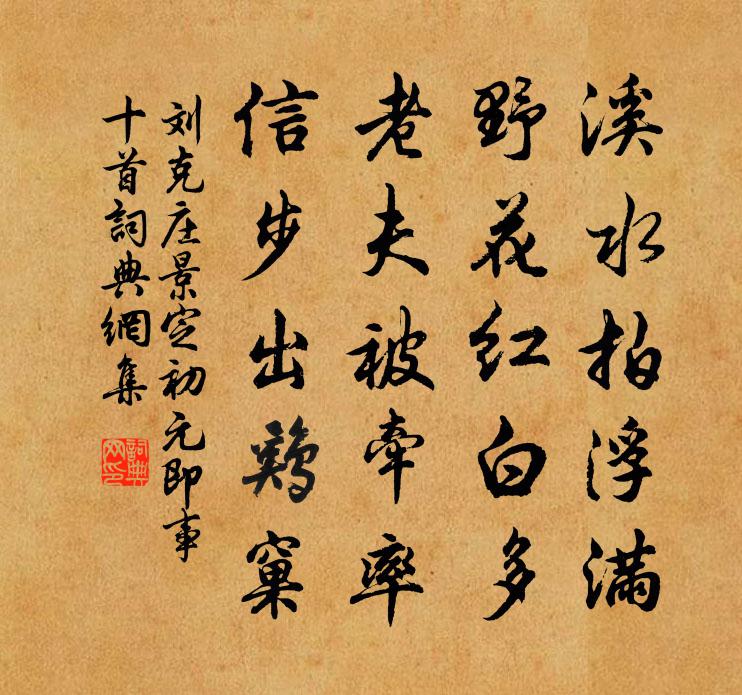 溪水拍浮满
野花红白多
老夫被牵率
信步出鷄窠
刘克庄景定初元即事
十首詞典網集
詞典網印